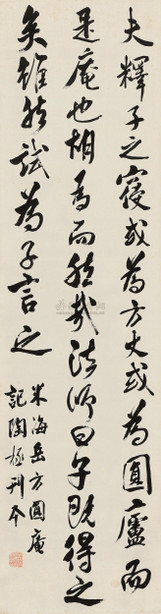 夫釋子之寢或為方丈或為圓廬而
是庵也胡為而然哉法師曰子既得之
矣雖然試為子言之
米海岳方圓庵
記陶極刊本